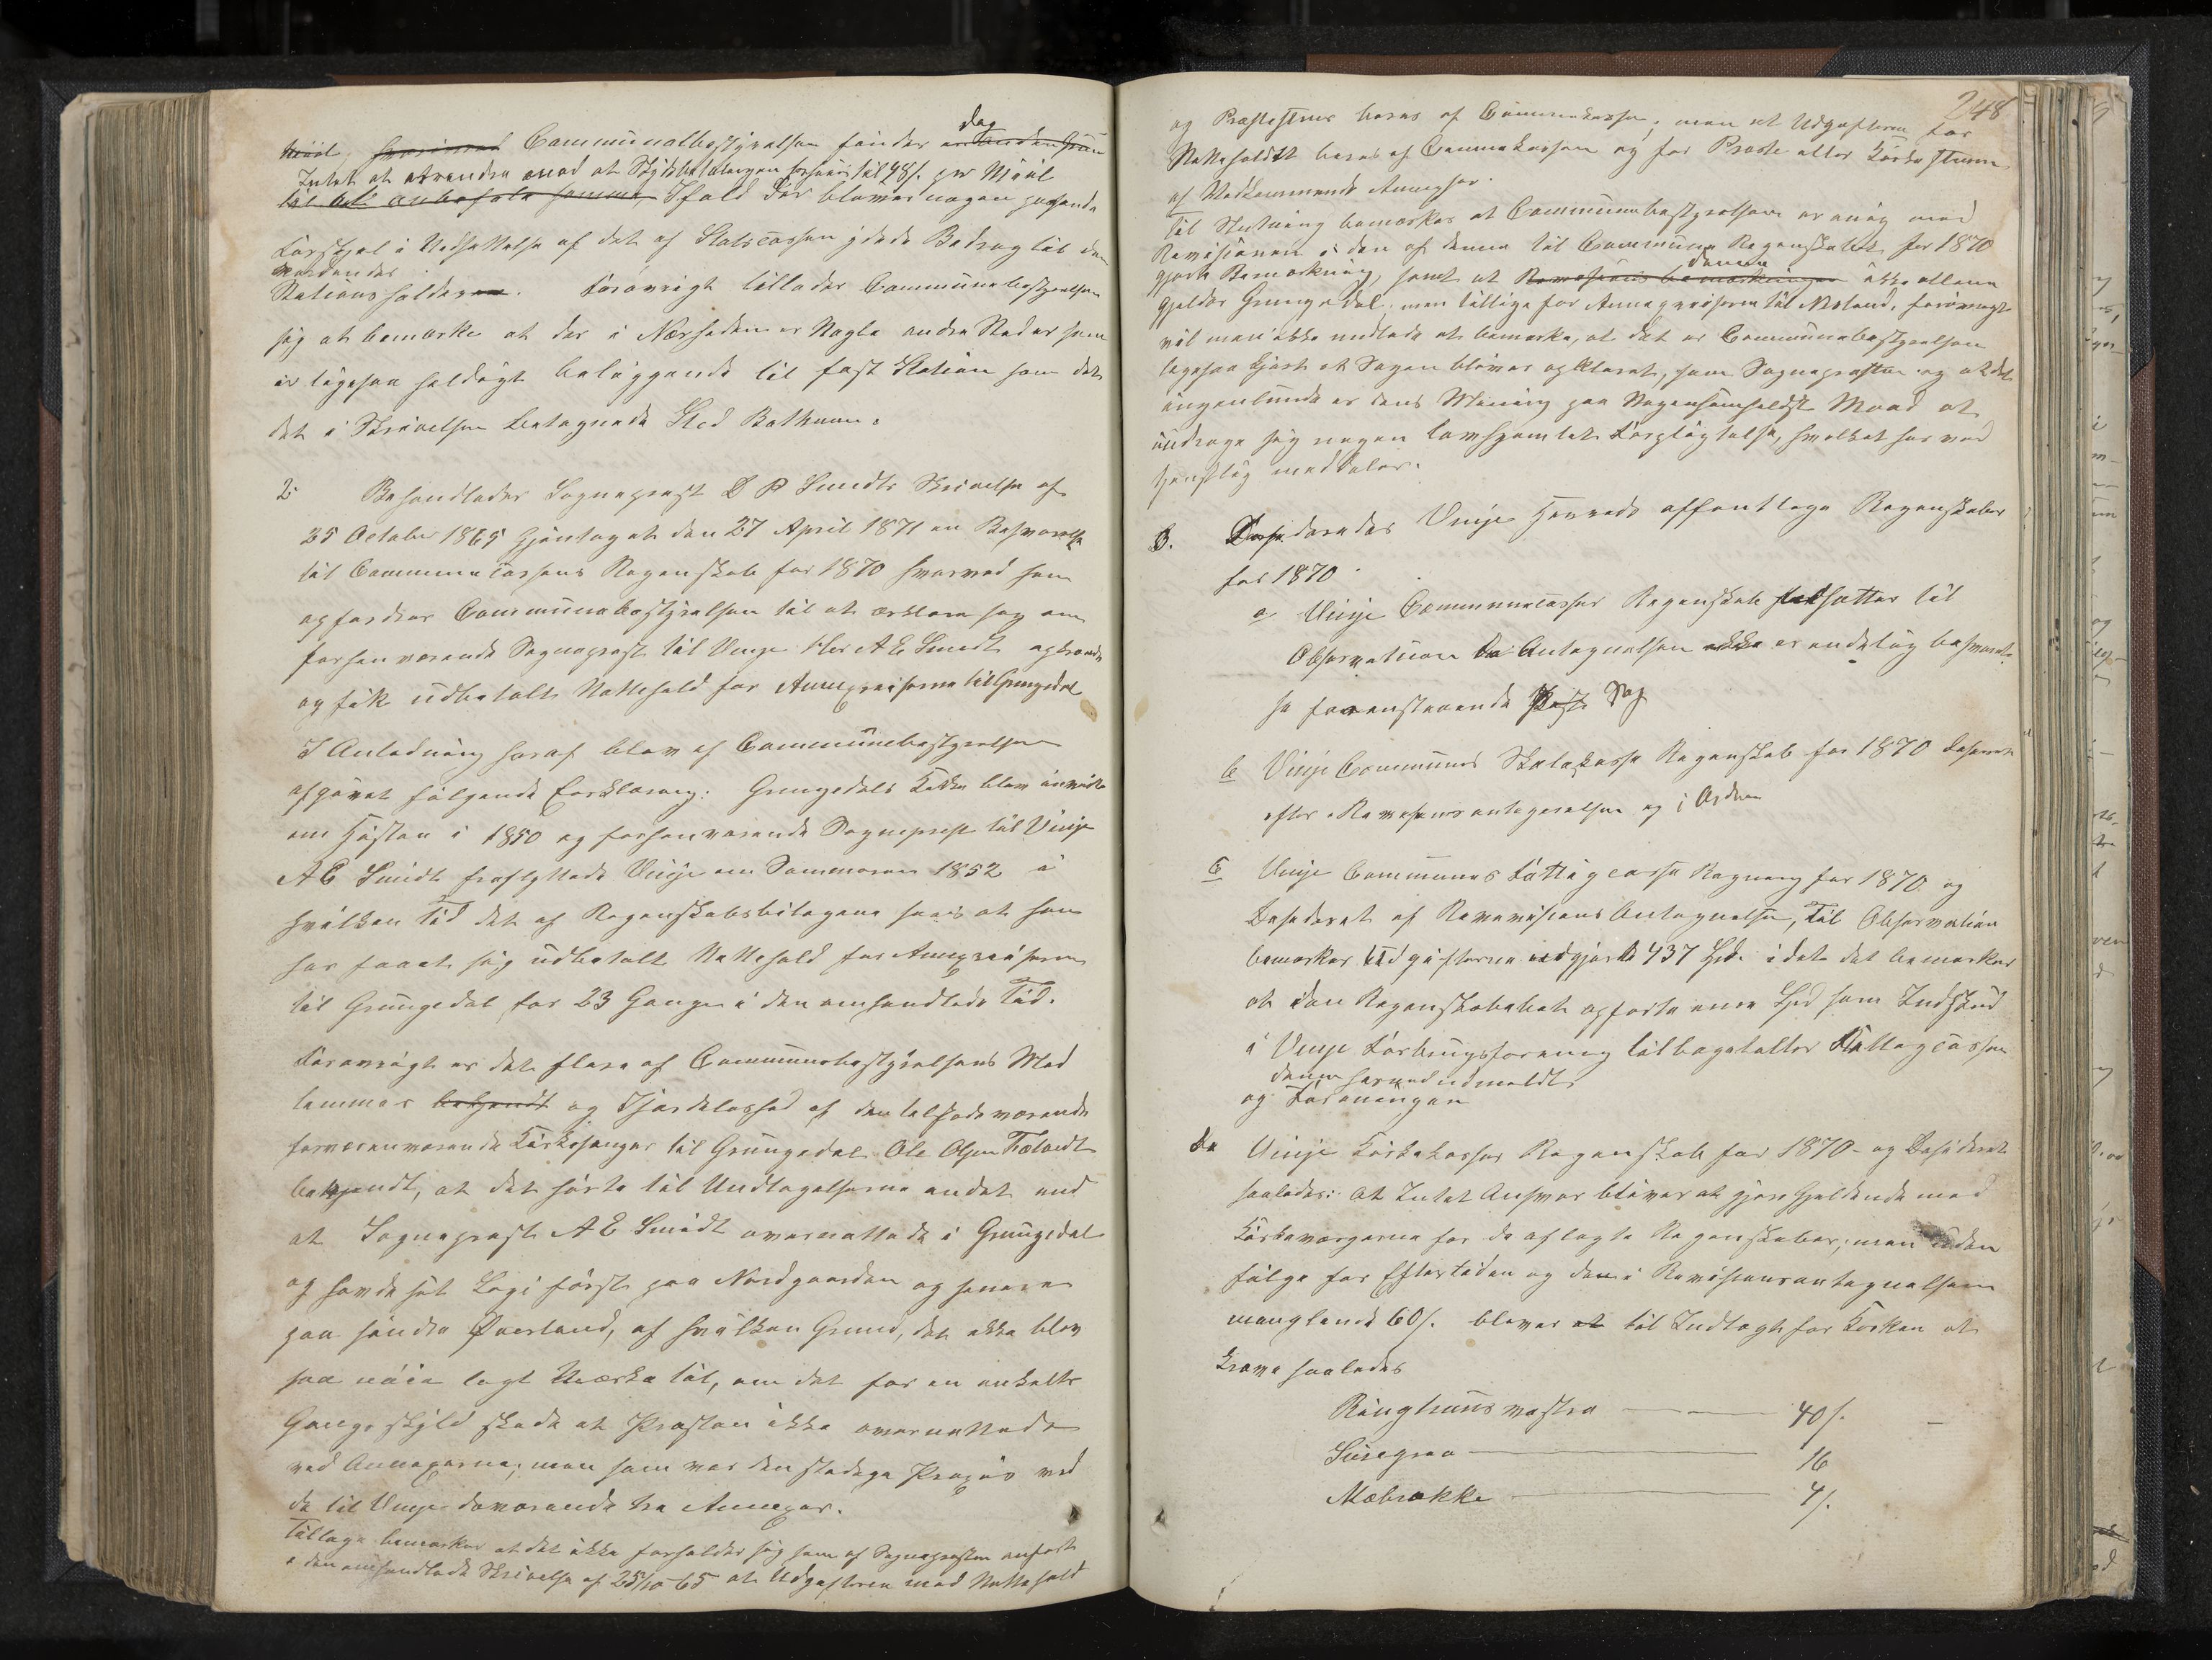 dog
Miil, hvorimod Communalbestyrelsen finder anden Grun
Intet at erindre mod at Skydsbetalingen forhøies til 48 s. pr Miil
til at anbefale samme, Ifald der bliver nogen
Forskjel i Nedsættelse af det af Statscassen ydede Bedrag til den
værdendes
Stationsholderen. Forøvrigt tillader Communebestyrelsen
sig at bemærke at der i Nærheden er Nogle andre Steder som
er ligesaa heldigt beliggende til fast Station som det
det i Skrivelsen betegnede Sted Bothnen.
2. Behandledes Sognepræst D P Smidts Skrivelse af
25 October 1865 Gjentaget den 27 April 1871 en Besvarelse
til Communecassens Regnskab for 1870 hvorved han
opfordrer Communebestyrelsen til at erklære sig om
forhenværende Sognepræst til Vinje Her A E Smidt oppebar
og fik udbetalt Nattehold for Annexreiserne til Grungedal
I Anledning heraf blev af Communebestyrelsen
afgivet følgende Erklæring: Grungedals Kirke blev indviet
om Høsten i 1850 og forhenværende Sognepræst til Vinje
A E Smidt fraflyttede Vinje om Sommeren 1852 i
hvilken Tid det af Regnskabsbilagene sees at han
har faaet sig udbetalt Natteholt for Annexreiserne
til Grungedal for 23 Gange i den omhandlede Tid.
Forøvrigt er det flere af Communebestyrelsens Med
lemmer bekjendt og Tjordeleshed af den tilstedeværende
forværenværende Kirkesanger til Grungedal Ole Olsen
bekjendt, at det hørte til Undtagelserne andet end
at Sognepræst A E Smidt overnattede i Grungedal
og havde sit Logi først paa Nordgaarden og senere
paa søndre Øverland, af hvilken Grund, det ikke blev
saa nøie lagt Mærke til, om det for en enkelt
Gangs skyld skede at Præsten ikke overnattede
ved Annexerne; men som var den stadige Praxis ved
de til Vinje daværende tre Annexer.
Tillige bemærkes at det ikke forholder sig som af Sognepræsten anført
i den omhandlede Skrivelse af 25/10-65 at Udgifterne med Natteholt
248
og Præsteskyds bæres af Communekassen; men at Udgifterne for
Natteholdet bæres af Communekassen og for Præste eller Kirkeskydsen
af Vedkommende Annexer.
til Slutning bemærkes at Communebestyrelsen er enig med
Revisionen i den af denne til Commune Regnskabet for 1870
denne
gjorte Bemærkning, samt at Revisions bemærkningen ikke allene
gjelder Grungedal; men tillige for Annexreiserne til Møland, forøvrigt
vil man ikke undlade at bemærke, at det er Communebestyrelsen
ligesaa kjært at Sagen bliver opklaret, som Sognepræsten og at det
ingenlunde er dens Mening paa Nogensomhelst Maad at
inddrage sig nogen lovhjemlet Forpligtelse, hvilket her ved
tjenstlig meddeles.
3. Desideredes Vinje Herreds offentlige Regnskaber
for 1870
a Vinje Communecasses Regnskab fastsattes til
Observation Da Antegnelsen ikke er endelig besvaret
se foranstaaende Post Sag
b Vinje Communes Skolekasse Regnskab for 1870 deseret
efter Revisions antegnelsen og i Orden
c Vinje Communes Fattigcasse Regning for 1870 og
Desideret af Revisions Antegnelse, Til Observation
bemærkes Udgifterne udgjorde 437 Spd. idet det bemærkes
at den Regnskabet opførte ene Spd som Indskud
i Vinje Forbrugsforening tilbagetalles Fattigcassen
denne herved udmeldt
og Foreningen
da Vinje Kirkekasses Regnskab for 1870 - og Desideret
saaledes: at Intet Ansvar bliver at gjøre Gjeldende med
Kirkeværgerne for de aflagte Regnskaber; men uden
følge for Eftertiden og den i Revisionsantegnelsen
manglende 60 s. bliver at til Indtægt for Kirken at
kræve saaledes
Ringhuus vestre — 40 s.
Susegrao — 16
Mæbrække — 4 s.